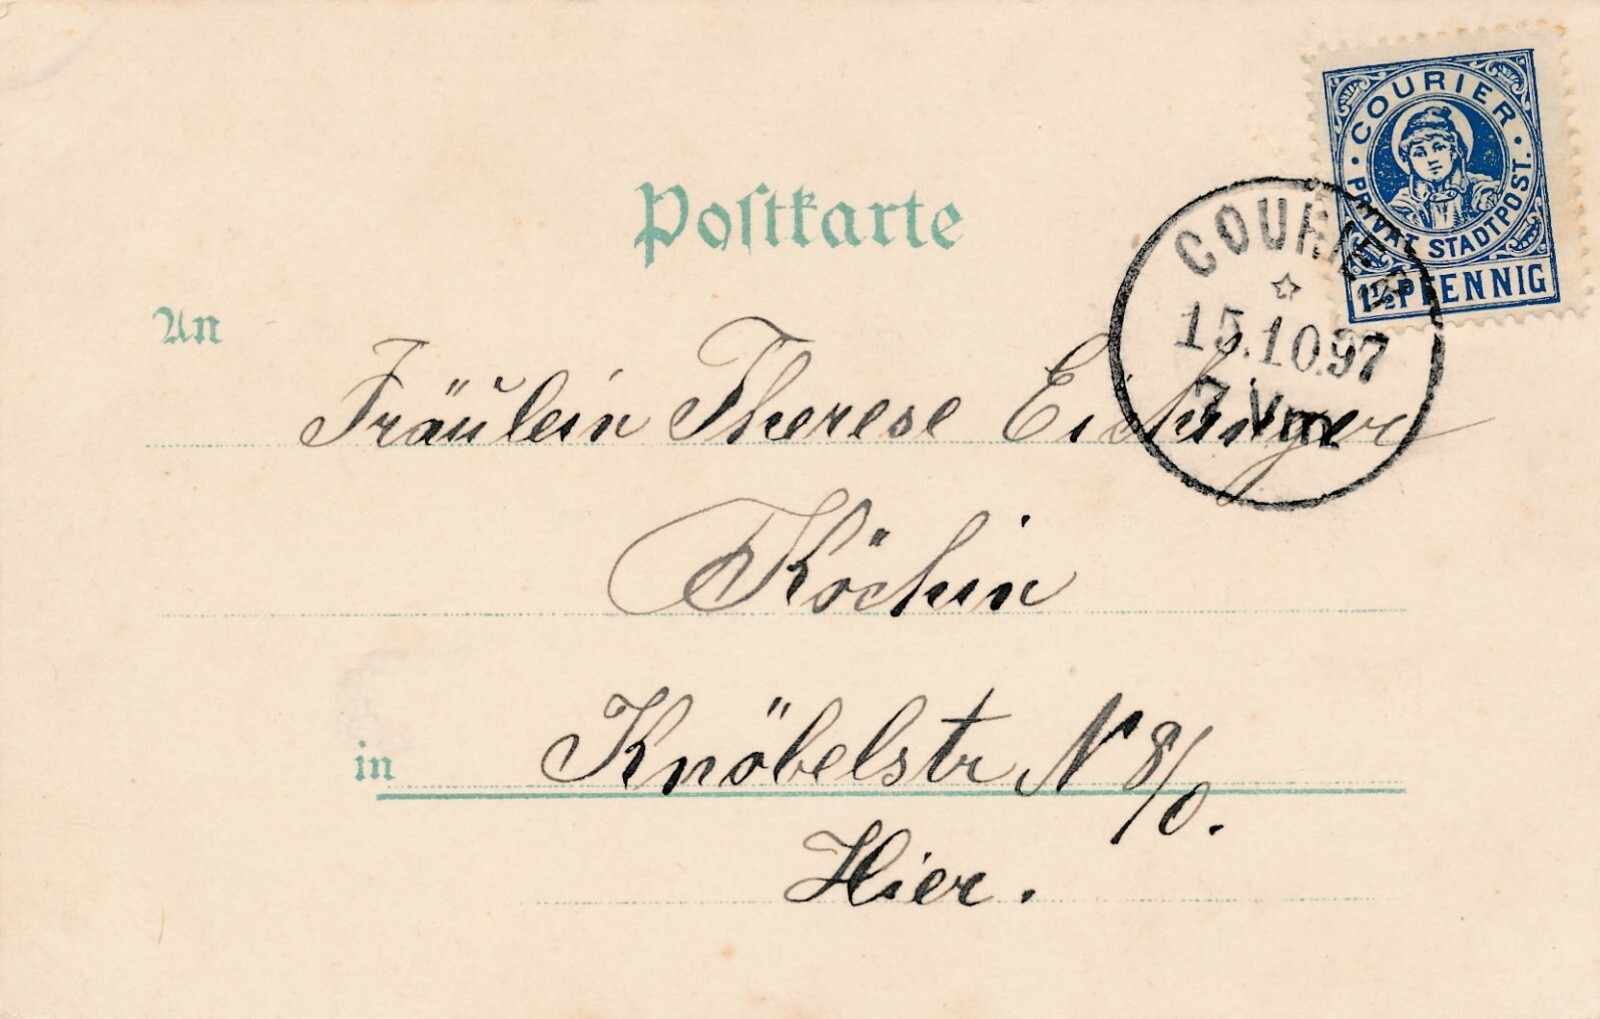 Postkarte
COURIER
PRIVAT STADTPOST.
1½ PFENNIG
COURIER
15.10.97
7 Vm
An
Fräulein Therese Eichinger
Köchin
in Knöbelstr N 8/0.
Hier.